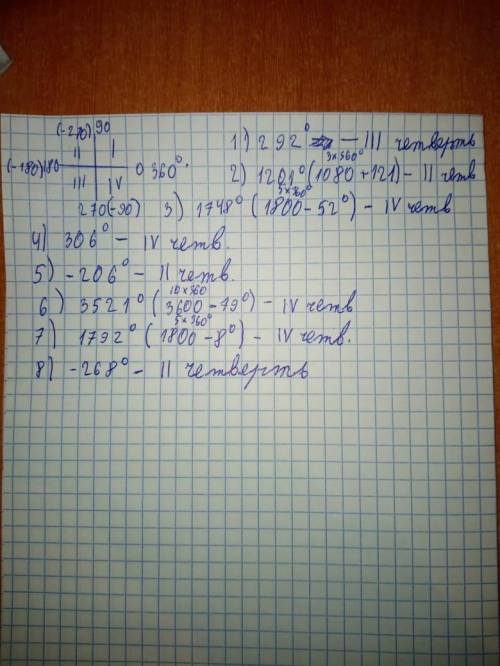 (-270) 90
II I
(-180) 180 0 360°.
III IV
270 (-90)
1) 292° — III четверть
3×360°
2) 1201° (1080 + 121) - II четв
5×360°
3) 1748° (1800 - 52°) - IV четв
4) 306° - IV четв.
5) -206° - II четв.
10×360
6) 3521° (3600 - 79°) - IV четв
5×360°
7) 1792° (1800 - 8°) - IV четв.
8) -268° - II четверть